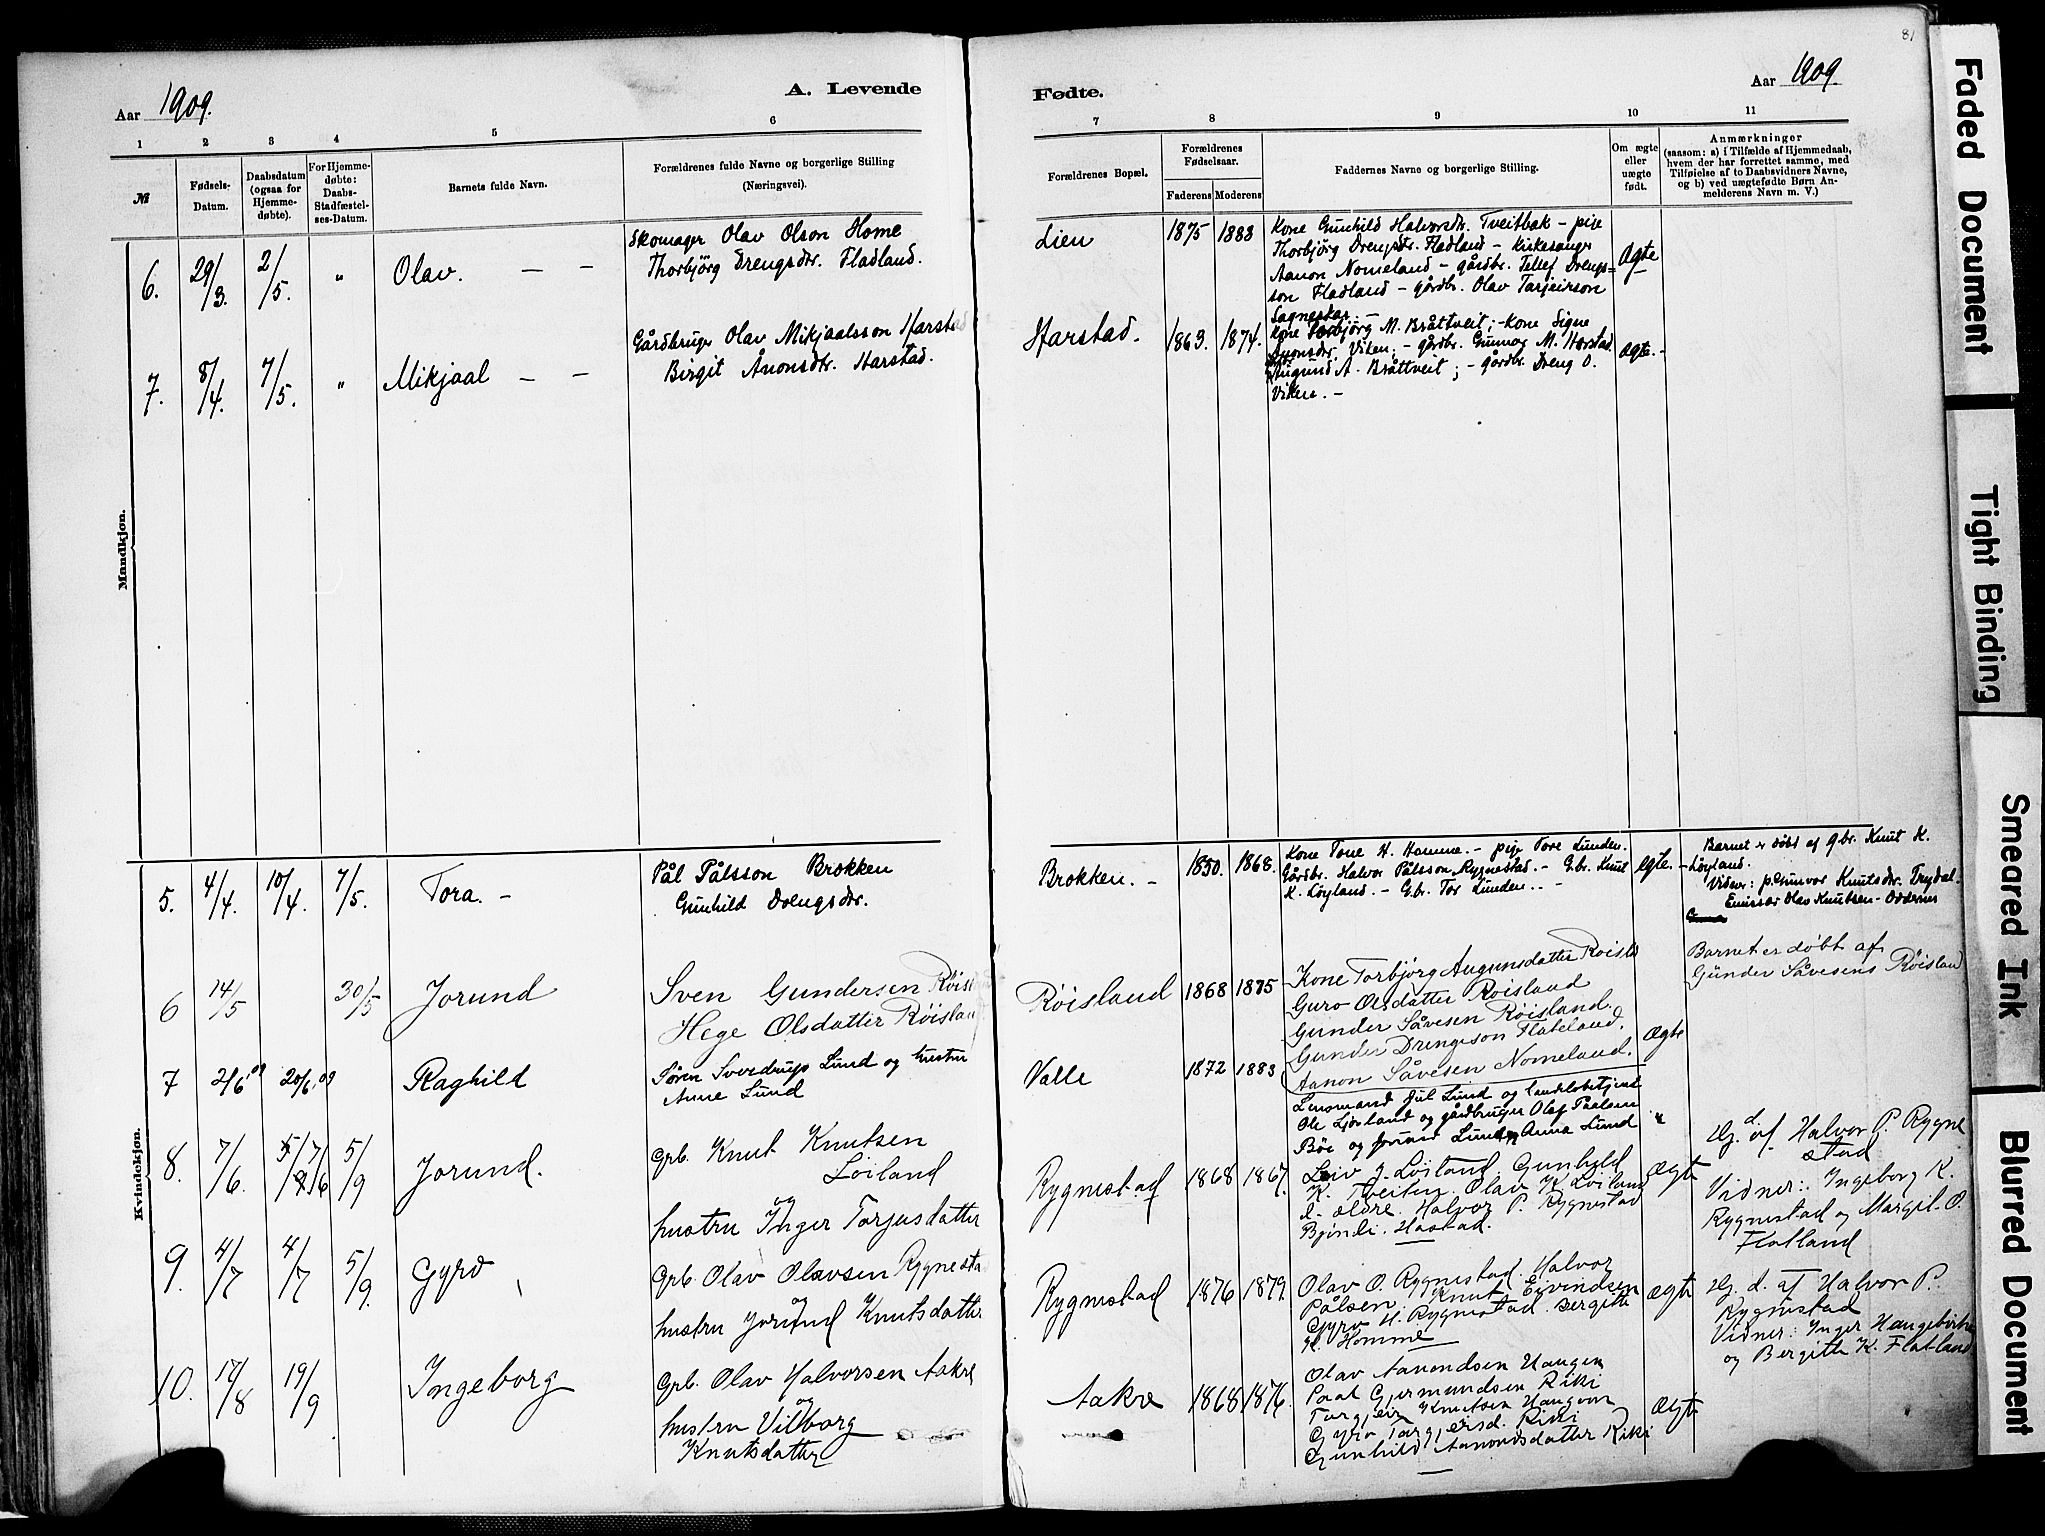 81
Aar 1909.
A. Levende
Fødte.
Aar 1909
1 2 3 4 5 6 7 8 9 10 11
№
Fødsels-
Datum.
Daabsdatum
(ogsaa for
Hjemme-
døbte).
For Hjemme-
døbte:
Daabs-
Stadfæstel-
ses-Datum.
Barnets fulde Navn.
Forældrenes fulde Navne og borgerlige Stilling
(Næringsvei).
Forældrenes Bopæl.
Forældrenes
Fødselsaar.
Faderens Moderens
Faddernes Navne og borgerlige Stilling.
Om ægte
eller
uægte
født.
Anmærkninger
(saasom: a) i Tilfælde af Hjemmedaab,
hvem der har forrettet samme, med
Tilføielse af to Daabsvidners Navne,
og b) ved uægtefødte Børn An-
melderens Navn m. V.)
Mandkjøn.
6. 29/3. 2/5. " Olav. — —
Skomager Olav Olson Home
Thorbjörg Drengsdtr. Fladland.
Lien 1875 1883
Kone Gunhild Halvorsdtr. Tveitbak – pige
Thorbjörg Drengsdtr. Fladland – kirkesanger
Aanon Nomeland – gårdbr. Tellef Drengs=
son Fladland – gårdbr. Olav Tarjeirson
Sagneskar. –
Ægte
7. 8/4. 7/5. " Mikjaal — —
Gårdbruger Olav Mikjaalsson Harstad
Birgit Ånonsdtr. Harstad.
Harstad. 1863. 1874.
Kone Torbjörg M. Bråttveit; - Kone Signe
Ånonsdtr. Viken; - gårdbr. Gunnar M. Harstad.
Augund A. Bråttveit; - gårdbr. Dreng O.
Viken. –
ægte. -
Kvindekjøn.
5. 4/4. 10/4. 7/5. Tora. –
Pål Pålsson Brokken
Gunhild Drengsdtr.
Brokken. – 1850. 1868.
Kone Tone H. Homme. – pige Tore Lunden.
Gårdbr. Halvor Pålsson Rygnestad. – G.br. Knut
K. Löyland. – G.br. Tor Lunden. –
ægte. –
Barnet er döbt af g.br. Knut K.
Löyland.
Vidner: p. Gunvor Knutsdtr. Trydal.
Emissær Olav Knutsen - Oddernes
6 14/5 30/5 Jorund
Sven Gundersen Røisl
Hege Olsdatter Røislan
Røisland 1868 1875
Kone Torbjørg Augunsdatter Røisla
Guro Olsdatter Røisland
Gunder Såvesen Røisland.
Gunder Drengson Flateland.
Aanon Såvesen Nomeland.
Ægte
Barnet er døbt af
Gunder Såvesens Røisland
7 2/6.09 20/6.09 Raghild
Søren Sverdrup Lund og hustru
Anne Lund
Valle 1872 1883
Lensmand Jul Lund og landhandlerinde
Ole Ljosland og gårdbruger Olaf Paalsen
Böe og fruer Lund og Anna Lund
"
8. 7/6. 7/6 5/9 Jorund.
Grb. Knut Knutsen
Löiland
og
hustru Inger Tarjusdatter
Rygnestad 1868 1867.
Leiv J. Löiland. Gunhild
K. Tveiten. Olav K. Löiland
d. ældre. Halvor P. Rygnestad
Hastad.
ægte
Hj. d. af. Halvor P. Rygne
stad
Vidner: Ingeborg K.
Rygnestad og Margit O.
Flatland
9. 4/7 4/7 5/9. Gyro
Grb. Olav Olavsen Rygnesta
og
hustru Jorund Knutsdatter
Rygnestad 1876 1879.
Olav O. Rygnestad. Halvor
Pålsen. Knut Eivindsen
Gyro H. Rygnestad. Bergitte
K. Homme
ægte
Hj. d. af Halvor P.
Rygnestad
Vidner: Inger
og Bergitte K. Flatland
10. 17/8 19/9 Ingeborg
Grb. Olav Halvorsen Aakre
og
hustru Vilborg
Knutsdatter
Aakre 1868 1876.
Olav Aanondsen Haugen
Paal Gjermundsen Riki
Targjeir Knutsen Haugen
Gyro Targjeirsd. Riki
Gunhild Aanondsdatter Riki
Ægte
Faded Document
Tight Binding
Smeared Ink
Blurred Document